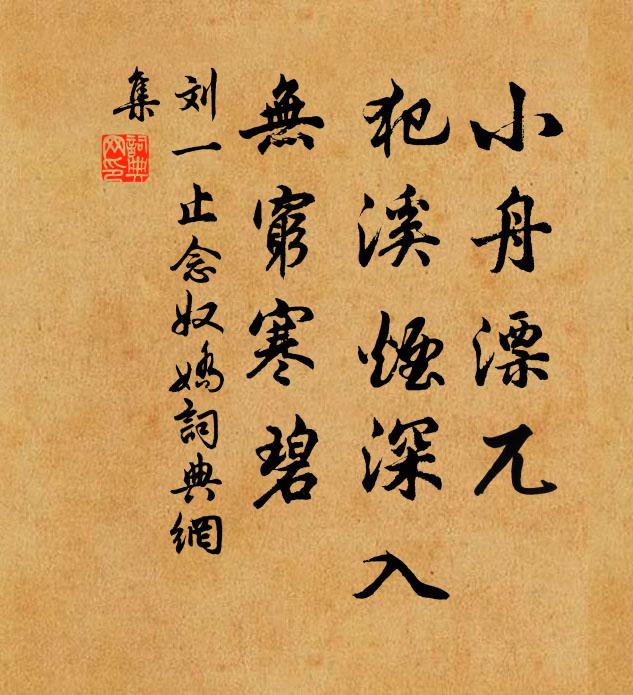 小舟漂兀
犯溪煙深入
無窮寒碧
刘一止念奴嬌詞典網
集
詞典
网印